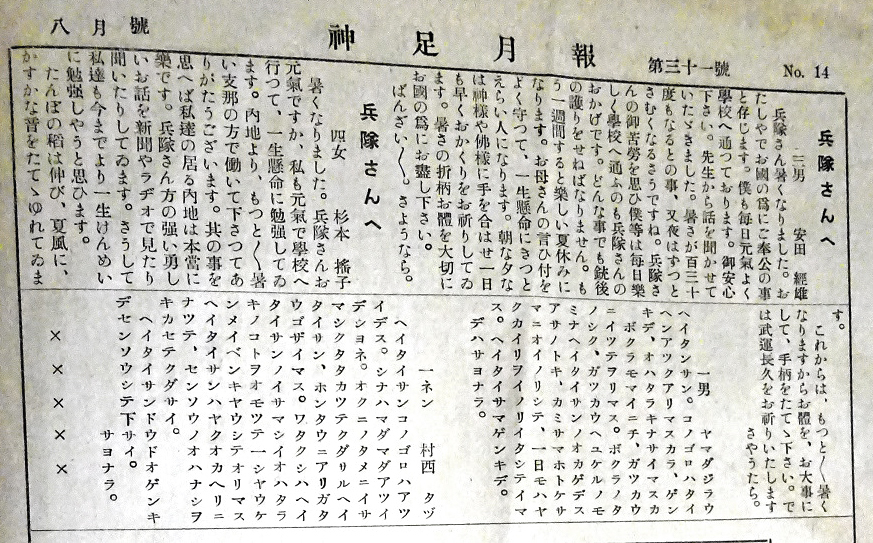 八月號
神足月報
第三十一號
No. 14
兵隊さんへ
三男 安田 經雄
兵隊さん暑くなりました。お
たしやでお國の爲にご奉公の事
と存じます。僕も毎日元氣よく
學校へ通つております。御安心
下さい。先生から話を聞かせて
いたゞきました。暑さが百三十
度もなるとの事、又夜はずつと
さむくなるさうですね。兵隊さ
んの御苦勞を思ひ僕等は毎日樂
しく學校へ通ふのも兵隊さんの
おかげです。どんな事でも銃後
の護りをせねばなりません。も
う一週間すると樂しい夏休みに
なります。お母さんの言ひ付を
よく守つて、一生懸命にきつと
えらい人になります。朝な夕な
は神樣や佛樣に手を合はせ一日
も早くおかくりをお祈りしてゐ
ます。暑さの折柄お體を大切に
お國の爲にお盡し下さい。
ばんざい〳〵。さようなら。
兵隊さんへ
四女 杉本 搖子
暑くなりました。兵隊さんお
元氣ですか、私も元氣で學校へ
行つて、一生懸命に勉強してゐ
ます。内地より、もつと〳〵暑
い支那の方で働いて下さつてあ
りがたうございます。其の事を
思へば私達の居る内地は本當に
樂です。兵隊さん方の强い勇し
いお話を新聞やラヂオで見たり
聞いたりしてゐます。さうして
私達も今までより一生けんめい
に勉強しやうと思ひます。
たんぼの稻は伸び、夏風に、
かすかな音をたてゝゆれてゐま
す。
これからは、もつと〳〵暑く
なりますからお體を、お大事に
して、手柄をたてゝ下さい。で
は武運長久をお祈りいたします
さやうたら。
一男 ヤマダジラウ
ヘイタンサン。コノゴロハタイ
ヘンアツクアリマスカラ、ゲン
キデ、オハタラキナサイマスカ
ボクラモマイニチ、ガツカウ
ニイツテヲリマス。ボクラノタ
ノシク、ガツカウヘユケルノモ
ミナヘイタイサンノオカゲデス
アサノトキ、カミサマホトケサ
マニオイノリシテ、一日モハヤ
クカイリヲイノリイタシテイマ
ス。ヘイタイサマゲンキデ。
デハサヨナラ。
一ネン 村西 タヅ
ヘイタイサンコノゴロハアツ
イデス。シナハマダマダアツイ
デショネ。オクニノタメニイサ
マシクタタカツテクダサルヘイ
タイサン、ホンタウニアリガタ
ウゴザイマス。ワタクシハヘイ
タイサンノイサマシイオハタラ
キノコトヲオモツテ一シヤウケ
ンメイベンキヤウシテオリマス
ヘイタイサンハヤクオカヘリニ
ナツテ、センソウノオハナシヲ
キカセテクダサイ。
ヘイタイサンドウドオゲンキ
デセンソウシテ下サイ。
サヨナラ。
× × × × ×